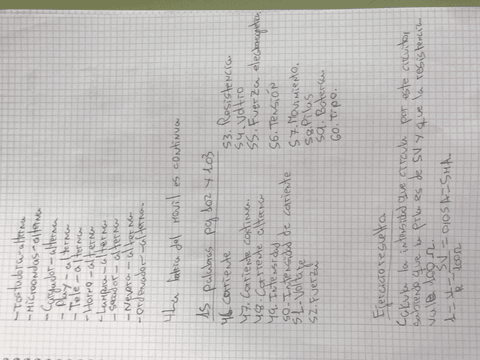 - Tostadora - alterna
- Microondas - alterna
- Cargador - alterna
- Play - alterna
- Tele - alterna
- Horno - alterna
- Lampara - alterna
- secador - alterna
- Nevera - alterna
- Ordenador - alterna
La bateria del movil es continua
15 palabras pag 102 y 103
46 corriente
47. Corriente continua
48. Corriente alterna
49. Intensidad
50. Intensidad de corriente
51. Voltage
52. Fuerza
53. Resistencia
54. Voltio
55. Fuerza electromotriz
56. TENSIÓN
57. Movimiento.
58. Pilas
59. Bateria
60. Tipo.
Ejercicio resuelto
Calcula la intensidad que circula por este circuito
sabiendo que la pila es de 5V y que la resistencia
vale 100 Ω.